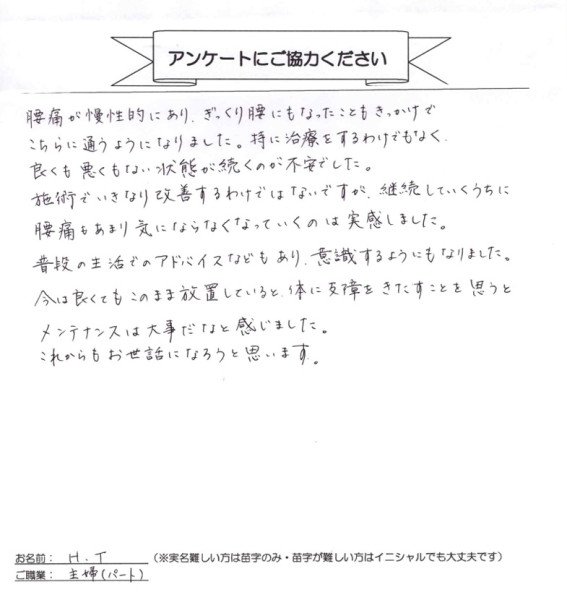 アンケートにご協力ください
腰痛が慢性的にあり、ぎっくり腰にもなったこともきっかけで
こちらに通うようになりました。特に治療をするわけでもなく、
良くも悪くもない状態が続くのが不安でした。
施術でいきなり改善するわけではないですが、継続していくうちに
腰痛もあまり気にならなくなっていくのは実感しました。
普段の生活でのアドバイスなどもあり、意識するようにもなりました。
今は良くてもこのまま放置していると、体に支障をきたすことを思うと
メンテナンスは大事だなと感じました。
これからもお世話になろうと思います。
お名前: H.T (※実名難しい方は苗字のみ・苗字が難しい方はイニシャルでも大丈夫です)
ご職業: 主婦(パート)